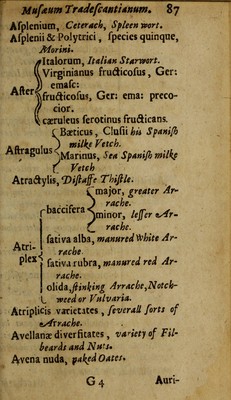 Musæum Tradescantianum. 87
Asplenium, Ceterach, Spleen wort.
Asplenii & Polytrici, species quinque,
Morini.
Aster
Italorum, Italian Starwort.
Virginianus fructicosus, Ger:
emasc:
fructicosus, Ger: ema: preco-
cior.
cæruleus serotinus fructicans.
Astragulus
Bæticus, Clusii his Spanish
milke Vetch.
Marinus, Sea Spanish milke
Vetch
Atractylis, Distaffe Thistle.
Atri-
plex
baccifera
major, greater Ar-
rache.
minor, lesser Ar-
rache.
sativa alba, manured White Ar-
rache
sativa rubra, manured red Ar-
rache.
olida, stinking Arrache, Notch-
weed or Vulvaria.
Atriplicis varietates, severall sorts of
Atrache.
Avellanæ diversitates, variety of Fil-
beards and Nuts.
Avena nuda, naked Oates.
G 4 Auri-